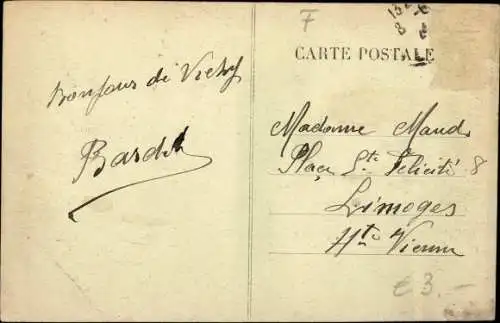 F
CARTE POSTALE
Bonjour de Vichy
Bardet
Madame Maud
Place Ste Félicité 8
Limoges
Hte Vienne
€ 3.-